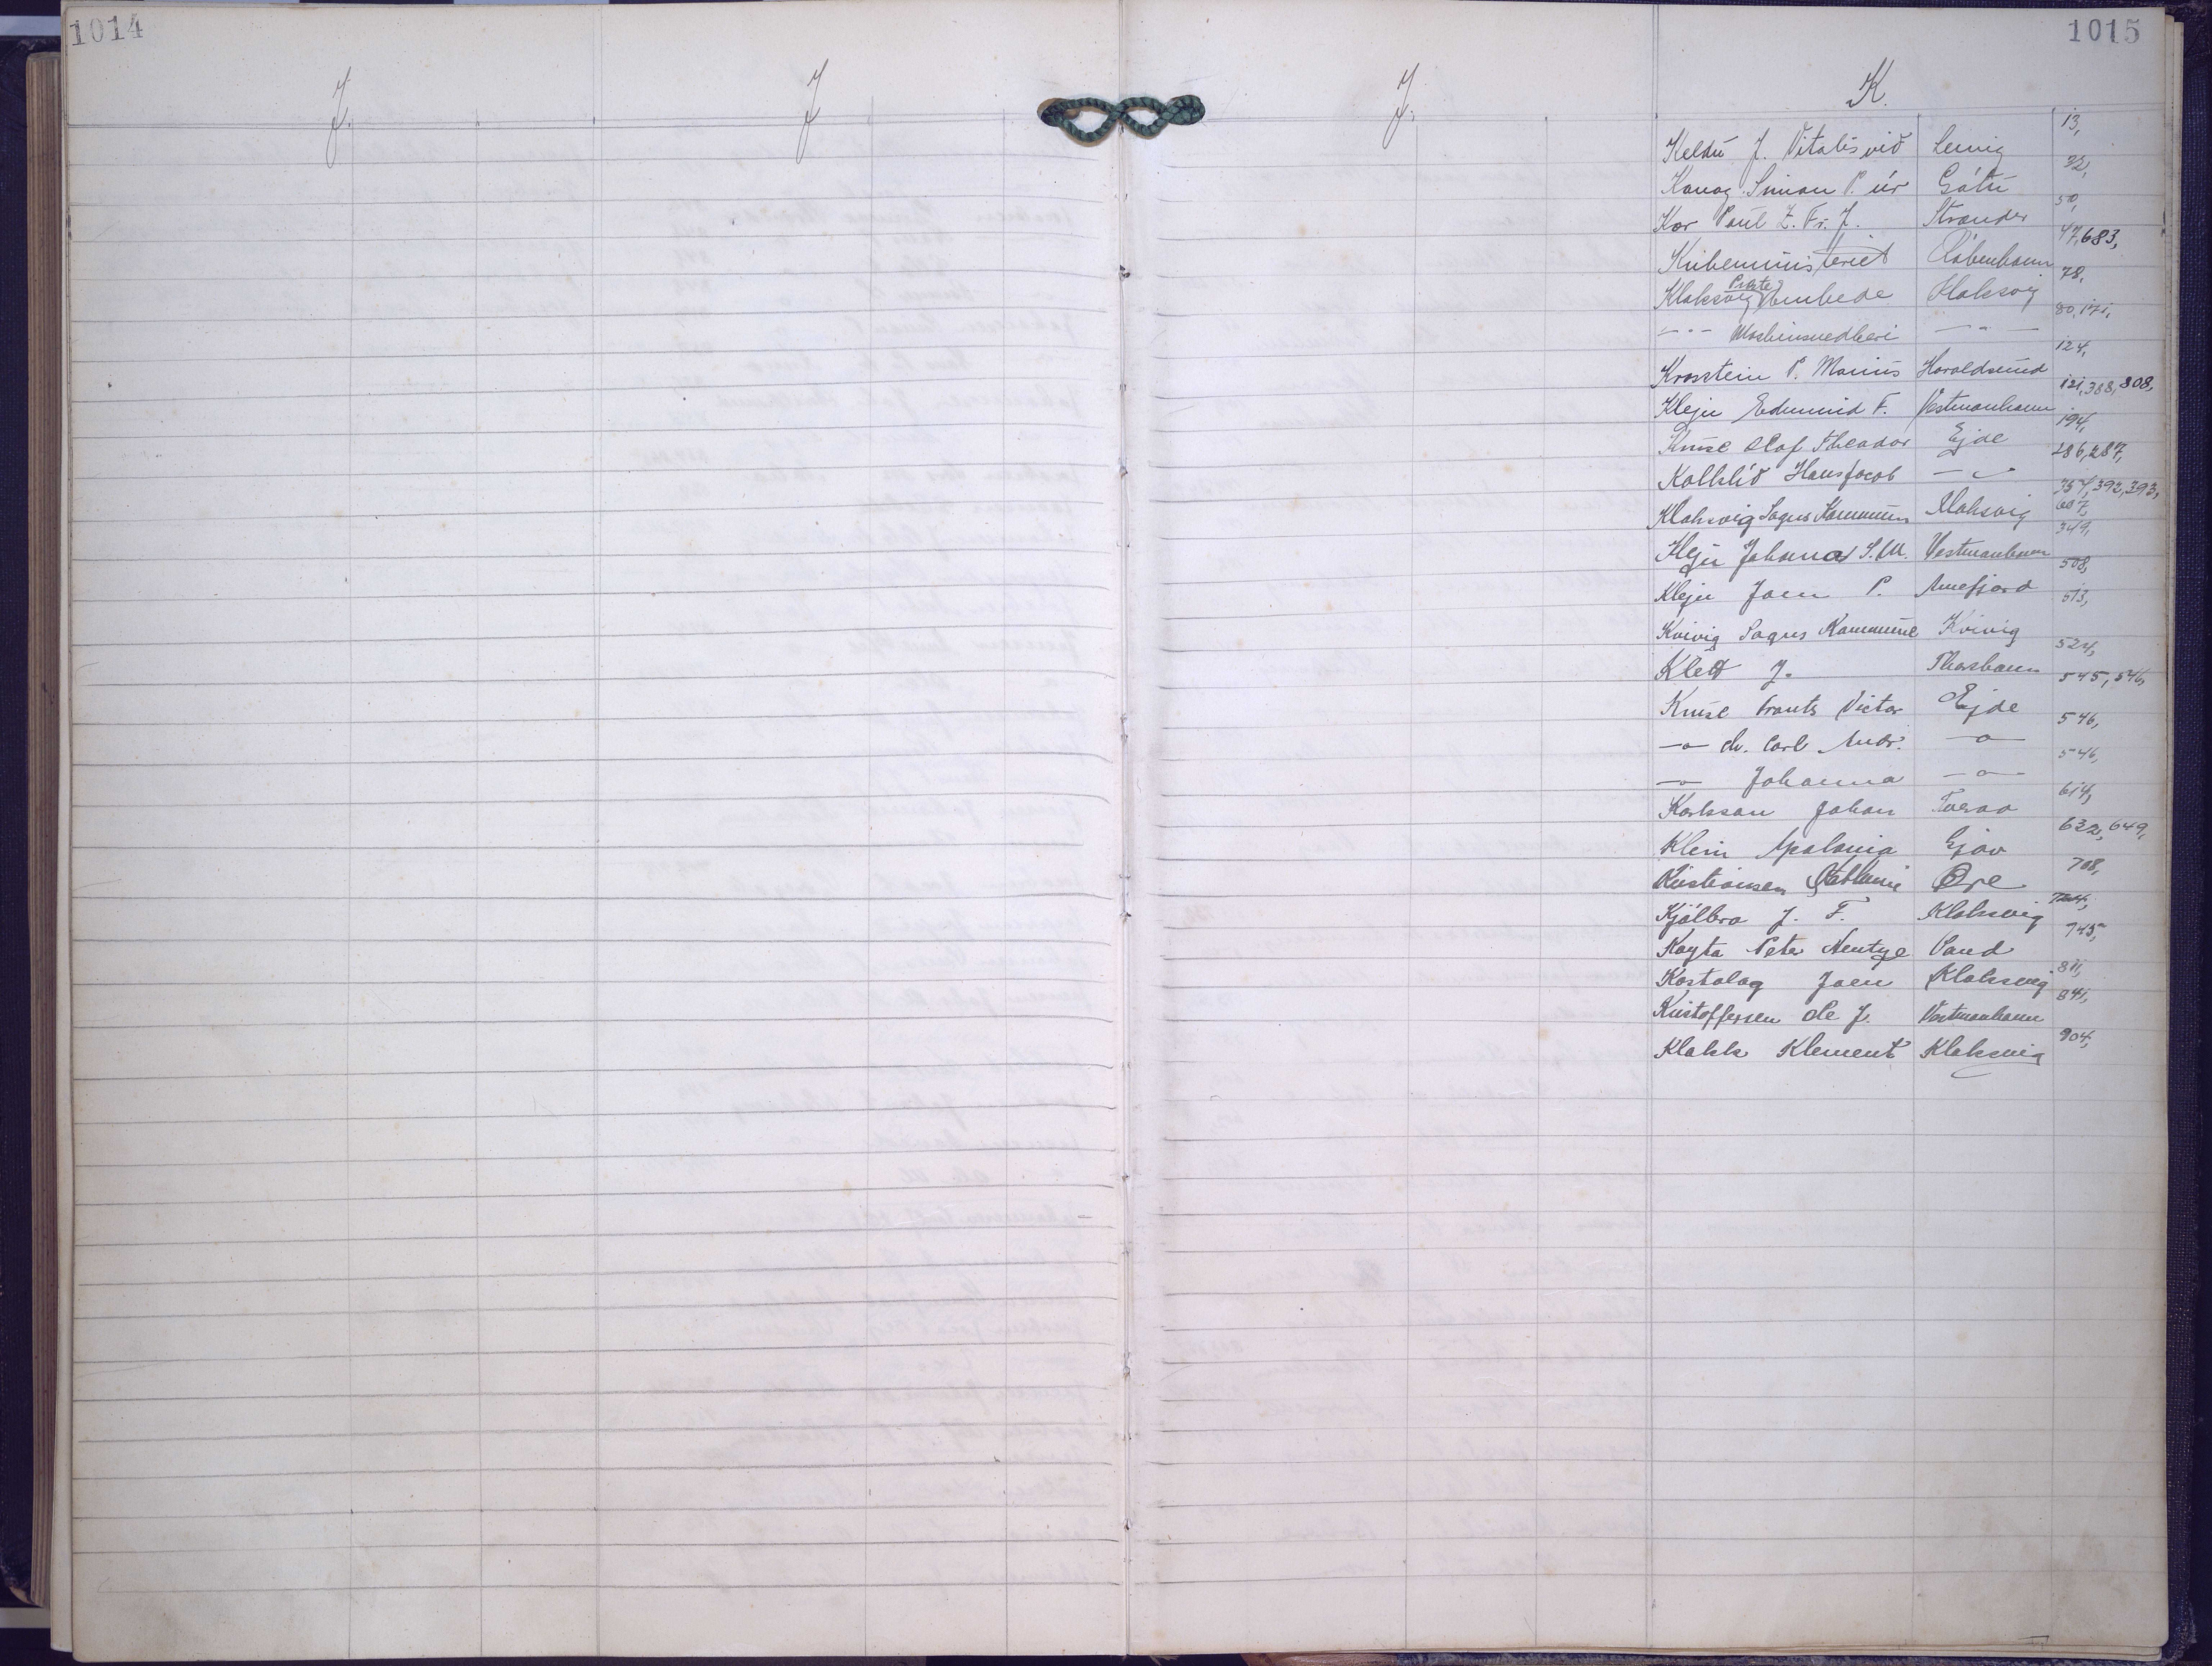 1014
1015
J. J J. K.
Keldu J. Vitalis við Leirvig 13,
Kanog. Simon P. úr Gøtu 32,
Kar Poul Z. Fr. J. Strander 50,
Kirkeministeriet København 47, 683,
Klaksvig Præste Embede Klaksvig 78,
- " - Maskinsnedkeri - " - 80, 171,
Krosstein P. Marius Haraldsund 124,
Klejn Edmund F. Vestmanhavn 121, 388, 808,
Kruse Olaf Theodor Ejde 194,
Kollslíð Hans Jacob - " - 286, 287,
Klaksvig Sogns Kommune Klaksvig 357, 392, 393, 607,
Klejn Johannes S. M. Vestmanhavn 349,
Klejn Joen P. Arnefjord 508,
Kvivig Sogns Kommune Kvivig 513,
Klett J. Thorshavn 524,
Kruse Frants Victor Ejde 545, 546,
-o- Chr. Carl Andr. -o- 546,
-o- Johanna -o- 546,
Karlsson Johan Tveraa 614,
Klein Apolonia Gjov 632, 649,
Kristiansen Stathanie Øre 708,
Kjølbro J. F. Klaksvig 724,
Kayta Peter Nentye Sand 745,
Kastalag Joen Klaksvig 811,
Kristoffersen Ole J. Vestmanhavn 841,
Klakk Klement Klaksvig 904,